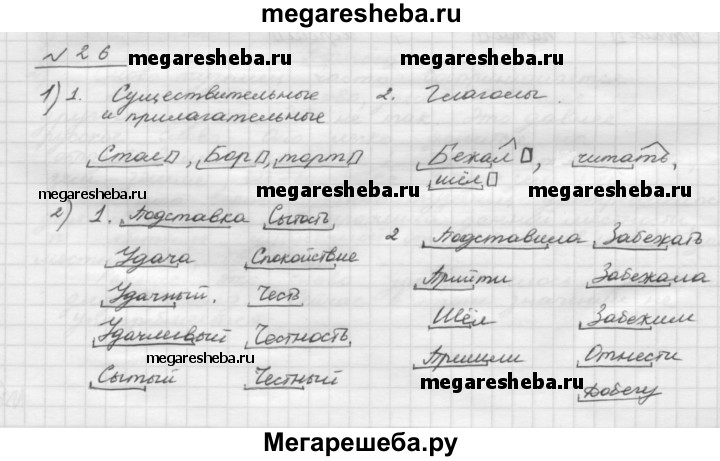 megaresheba.ru
№ 26 megaresheba.ru megaresheba.ru
1) 1. Существительные 2. Глаголы.
и прилагательные
Стол▯, Бор▯, торт▯ Бежал▯, читать,
шёл▯
megaresheba.ru megaresheba.ru
2) 1. Подставка Сытость 2 Подставила Забежать
Удача Спокойствие Прийти Забежала
Удачный. Честь Шёл Забежим
Удачливый Честность Пришили Отнести
megaresheba.ru
Сытый Честный megaresheba.ru Добегу
Мегарешеба.ру